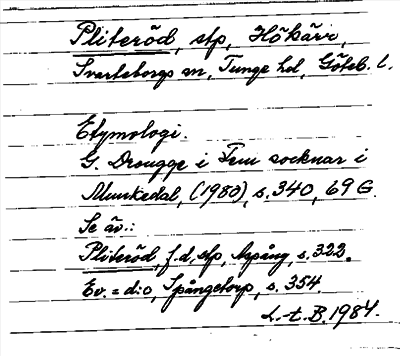 Pliteröd, stp, Hökärr,
Svarteborgs sn, Tunge hd, Göteb. l.
Etymologi.
G. Drougge i Fem socknar i
Munkedal, (1980), s. 340, 69 G.
Se äv.:
Pliteröd, f.d. stp, Aspång, s. 322.
Ev. = d:o, Spångetorp, s. 354.
L-t. B. 1984.